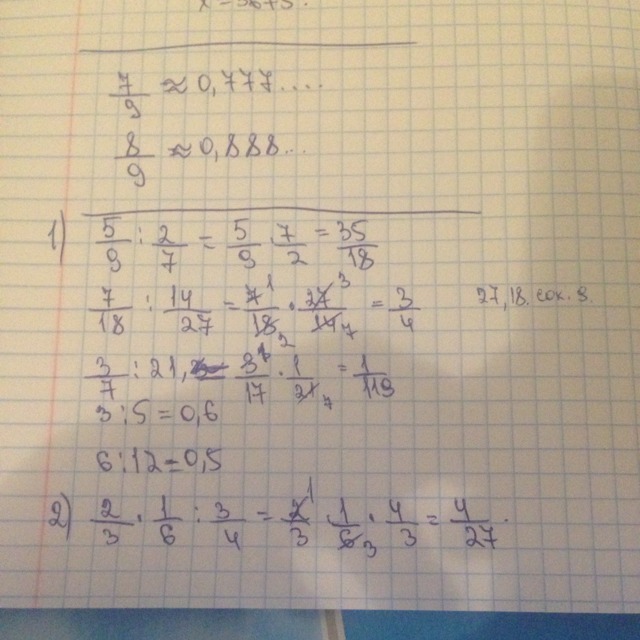 7/9 ≈ 0,777....
8/9 ≈ 0,888...
1) 5/9 : 2/7 = 5/9 · 7/2 = 35/18
7/18 : 14/27 = 7¹/18₂ · 27³/14₂ = 3/4 27,18. сок. 9.
3/7 : 21, 3¹/17 · 1/21₇ = 1/119
3:5=0,6
6:12=0,5
2) 2/3 · 1/6 : 3/4 = 2¹/3 · 1/6₃ · 4/3 = 4/27.